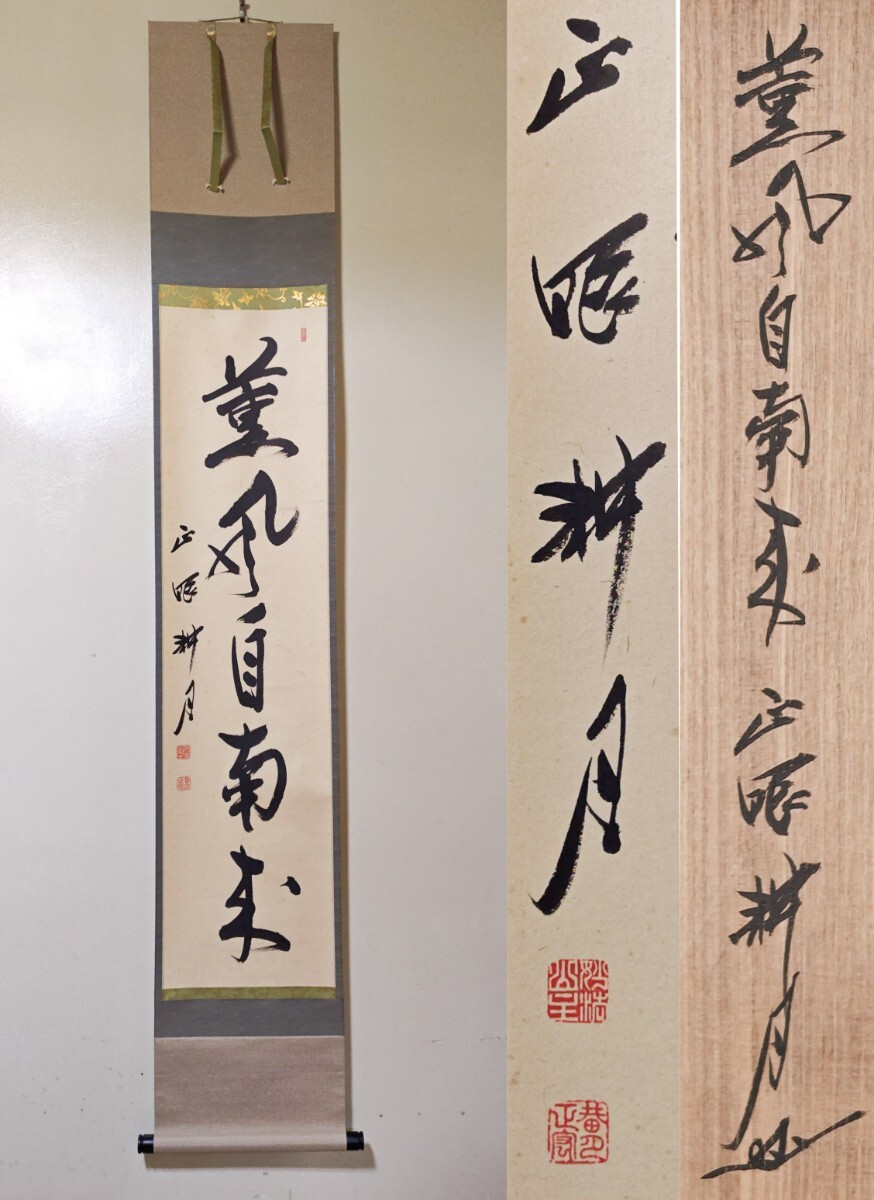 薫風自南来
正眼耕月
正眼耕月
薫風自南来 正眼耕月